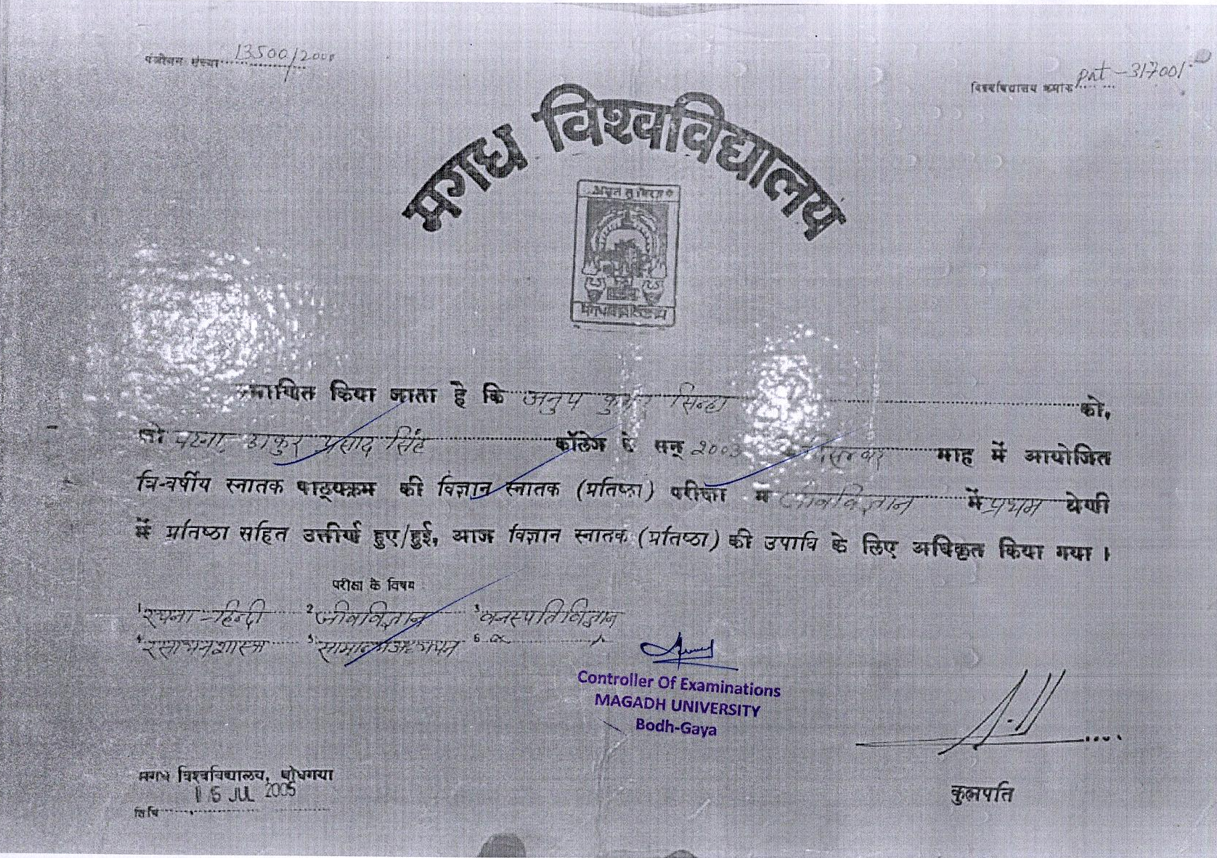 पंजीयन संख्या 13500/2000
विश्वविद्यालय क्रमांक Pat-317001
मगध विश्वविद्यालय
किया जाता है कि अनुप कुमार सिन्हा को,
जो पटना ठाकुर प्रसाद सिंह कॉलेज से सन् 2003 दिसम्बर माह में आयोजित
त्रि-वर्षीय स्नातक पाठ्यक्रम की विज्ञान स्नातक (प्रतिष्ठा) परीक्षा में जीवविज्ञान में प्रथम श्रेणी
में प्रतिष्ठा सहित उत्तीर्ण हुए/हुई, आज विज्ञान स्नातक (प्रतिष्ठा) की उपाधि के लिए अधिकृत किया गया ।
परीक्षा के विषय :
1 रचना-हिन्दी 2 जीवविज्ञान 3 वनस्पतिविज्ञान
4 रसायनशास्त्र 5 सामान्यअध्ययन 6
Controller Of Examinations
MAGADH UNIVERSITY
Bodh-Gaya
मगध विश्वविद्यालय, बोधगया
15 JUL 2005
तिथि
कुलपति